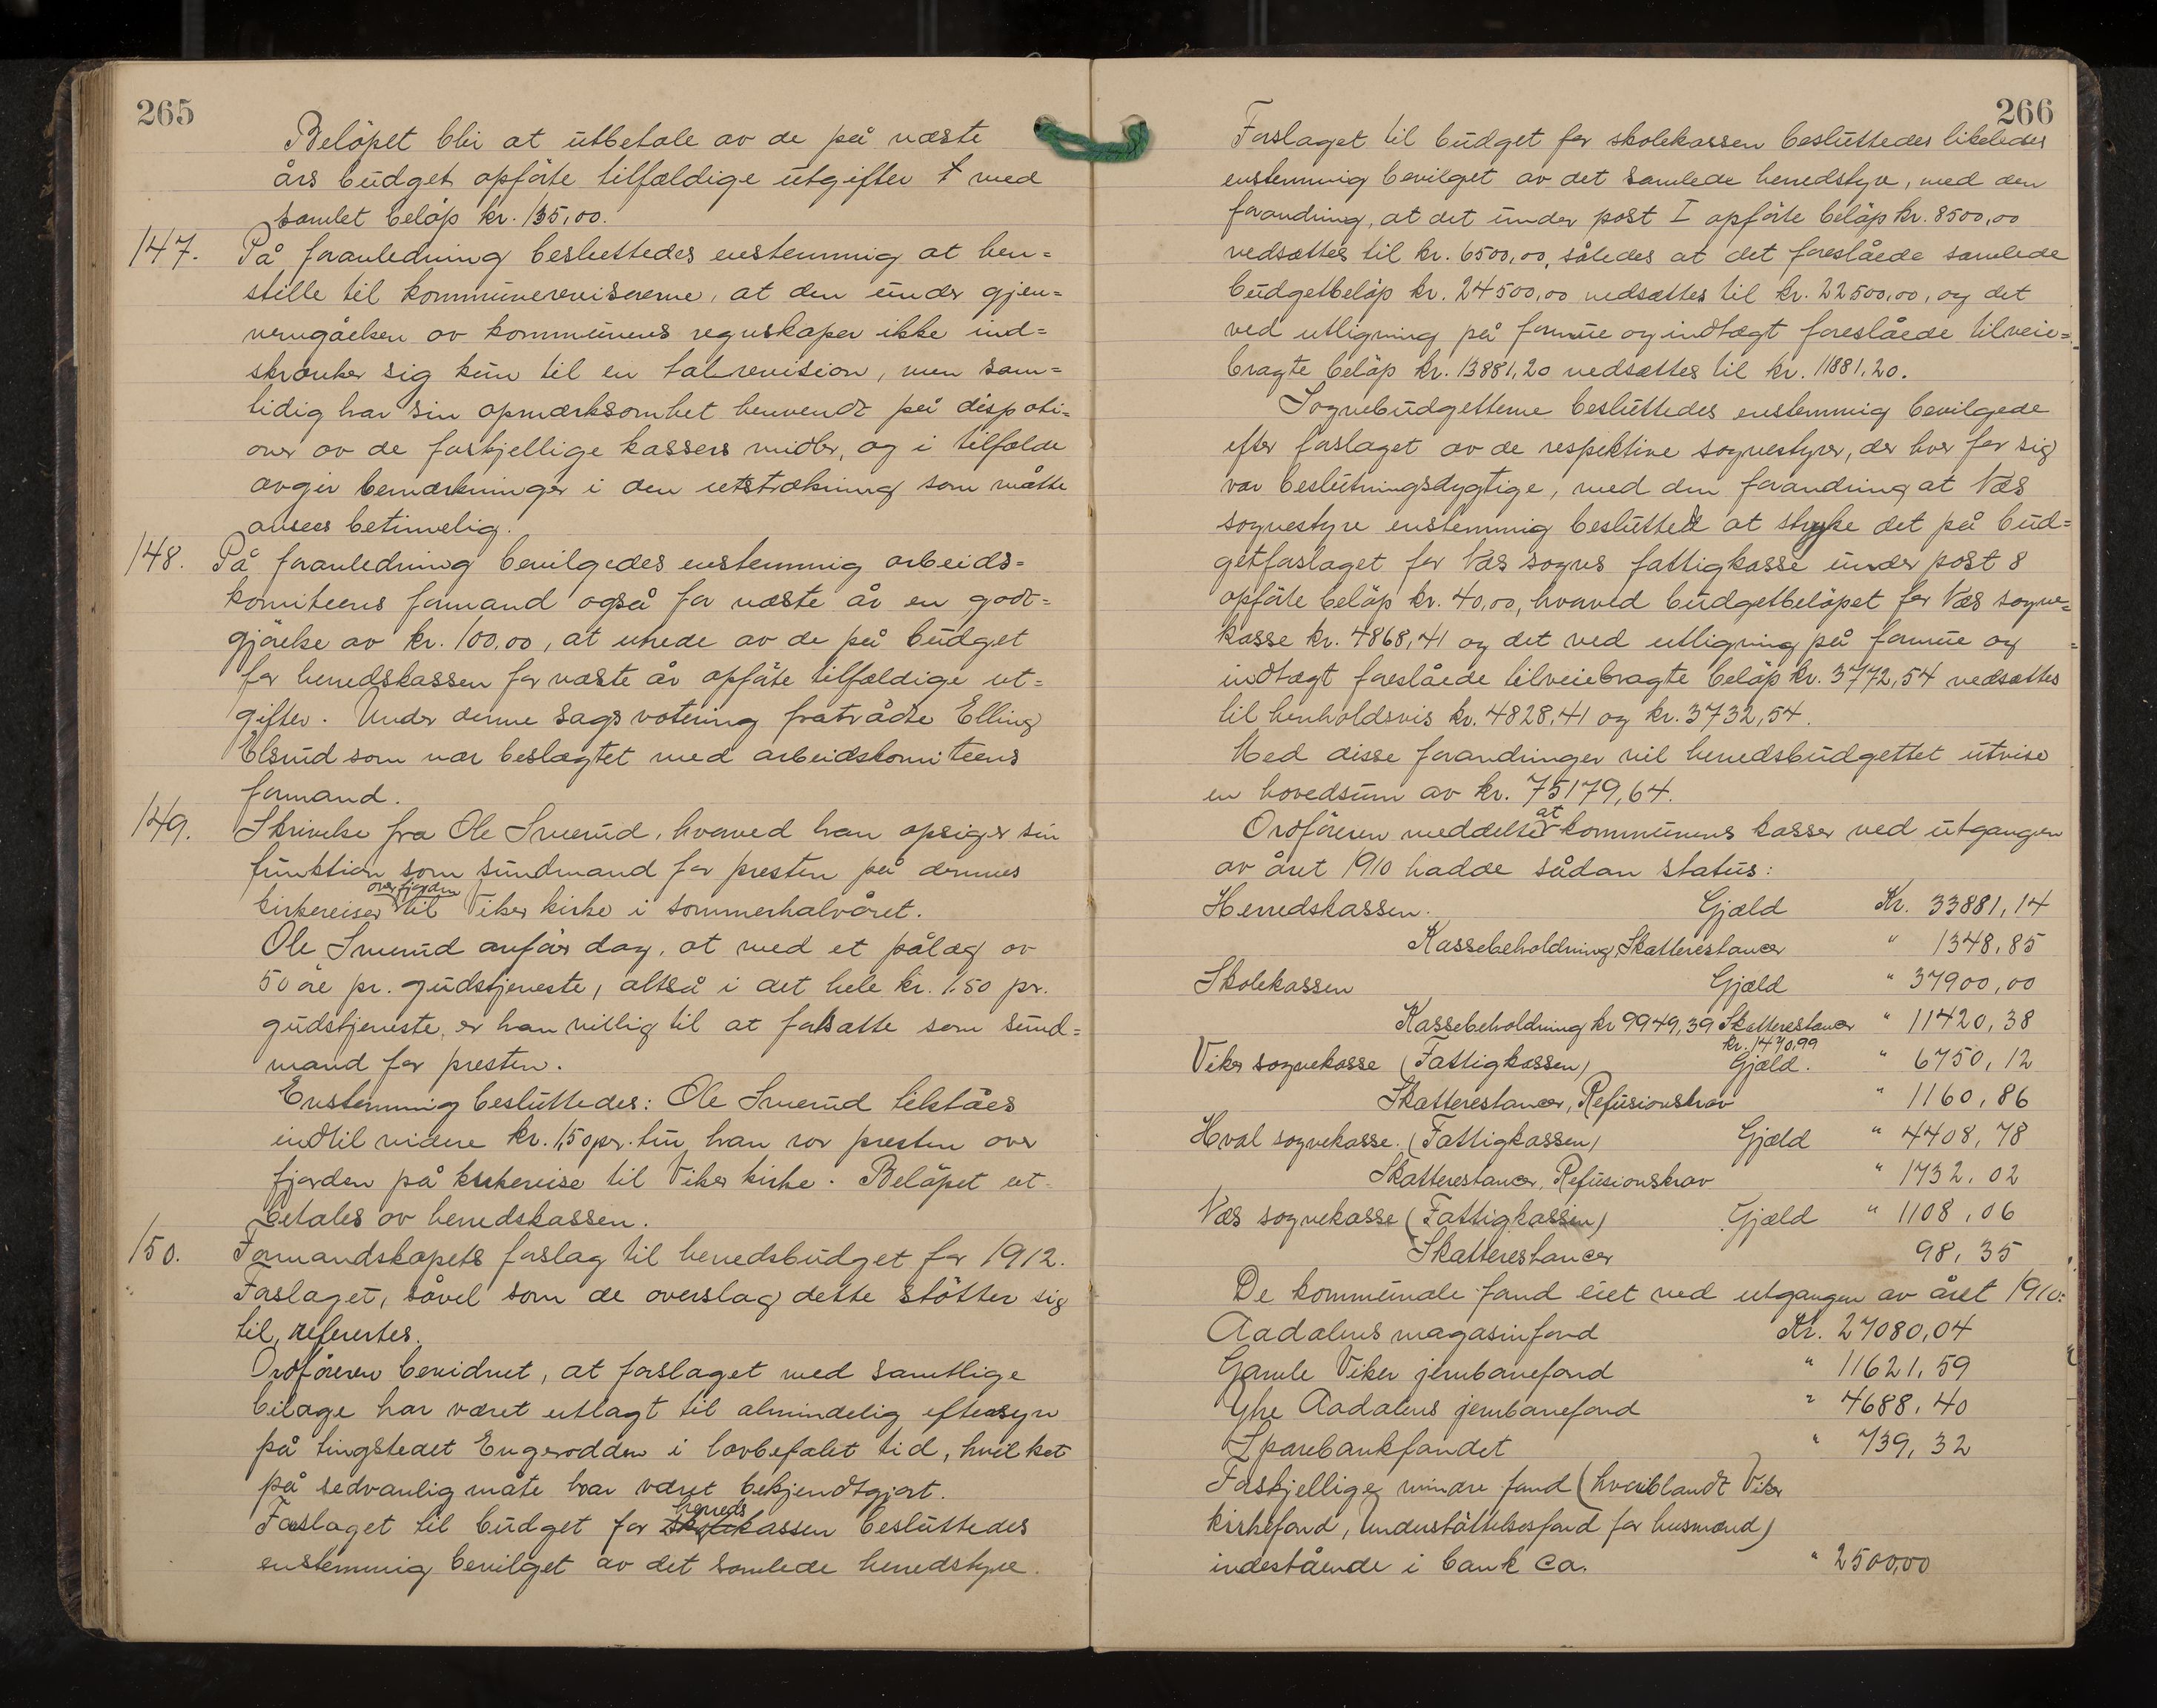 265
Beløpet blir at utbetale av de på næste
års budget opførte tilfældige utgifter med
samlet beløp kr. 135,00.
147. På foranledning besluttedes enstemmig at hen=
stille til kommunerevisorerne, at den under gjen=
nemgåelsen av kommunens regnskaper ikke ind=
skrænker sig kun til en talrevision, men sam=
tidig har sin opmærksomhet henvendt på disposi=
oner av de forskjellige kassers midler, og i tilfælde
avgir bemærkninger i den utstrækning som måtte
ansees betimelig.
148. På foranledning bevilgedes enstemmig arbeids=
komiteens formand også for næste år en godt=
gjørelse av kr. 100,00, at utrede av de på budget
for herredskassen for næste år opførte tilfældige ut=
gifter. Under denne sags votering fratrådte Elling
Elsrud som var beslægtet med arbeidskomiteens
formand.
149. Skrivelse fra Ole Smerud, hvorved han opsiger sin
funktion som sundmand for presten på dennes
kirkereiser over fjorden til Viker kirke i sommerhalvåret.
Ole Smerud anfør dog, at med et pålæg av
50 øre pr. gudstjeneste, altså i det hele kr. 1.50 pr.
gudstjeneste, er han villig til at fortsætte som sund=
mand for presten.
Enstemmig besluttedes: Ole Smerud tilståes
indtil videre kr. 1,50 pr. tur han ror presten over
fjorden på kirkereise til Viker kirke. Beløpet ut-
betales av herredskassen.
150. Formandskapets forslag til herredsbudget for 1912.
Forslaget, såvel som de overslag dette støtter sig
til, refereres.
Ordføreren bevidnet, at forslaget med samtlige
bilage har været utlagt til almindelig eftersyn
på tingstedet Engerodden i lovbefalet tid, hvilket
på sedvanlig måte har været bekjendtgjort.
Forslaget til budget for herredskassen besluttedes
enstemmig bevilget av det samlede herredstyre.
266
Forslaget til budget for skolekassen besluttedes likeledes
enstemmig bevilget av det samlede herredstyre, med den
forandring, at det under post I opførte beløp kr. 8500,00
nedsættes til kr. 6500,00, således at det foreslåede samlede
budgetbeløp kr. 24500,00 nedsættes til kr. 22500,00, og det
ved utligning på formue og indtægt foreslåede tilveie=
bragte beløp kr. 13881,20 nedsættes til kr. 11881,20.
Sognebudgetterne besluttedes enstemmig bevilgede
efter forslaget av de respektive sognestyrer, der hver for sig
var beslutningsdygtige, med den forandring at Næs
sognestyre enstemmig besluttet at stryke det på bud=
getforslaget for Næs sogns fattigkasse under post 8
opførte beløp kr. 40,00, hvorved budgetbeløpet for Næs sogne=
kasse kr. 4868,41 og det ved utligning på formue og
indtægt foreslåede tilveiebragte beløp kr. 3772,54 nedsættes
til henholdsvis kr. 4828,41 og kr. 3732,54.
Med disse forandringer vil herredsbudgettet utvise
en hovedsum av kr. 75179,64.
Ordføreren meddelte at kommunens kasser ved utgangen
av året 1910 hadde sådan status:
Herredskassen. Gjæld Kr. 33881,14
Kassebeholdning, Skatterestancer " 1348,85
Skolekassen Gjæld " 37900,00
Kassebeholdning kr 9949,39 Skatterestancer kr. 1470,99 " 11420,38
Viker sognekasse (Fattigkassen) Gjæld. " 6750,12
Skatterestancer, Refusionskrav " 1160,86
Hval sognekasse. (Fattigkassen) Gjæld " 4408,78
Skatterestancer, Refusionskrav " 1732,02
Næs sognekasse (Fattigkassen) Gjæld " 1108,06
Skatterestancer 98,35
De kommunale fond eiet ved utgangen av året 1910:
Aadalens magasinfond Kr. 27080,04
Gamle Viker jernbanefond " 11621,59
Ytre Aadalens jernbanefond " 4688,40
Sparebankfondet " 739,32
Forskjellige mindre fond (hvoriblandt Viker
kirkefond, Understøttelsesfond for husmænd)
indestående i bank ca. " 2500,00